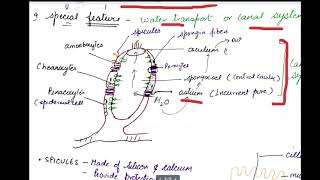 9. special feature - water transport or canal system
spicules
spongin fiber
out
amoebocytes
osculum
Choanocytes
Porocytes
spongocoel (central cavity)
Pinacocytes
(epidermal cell)
ostium (incurrent pore)
H2O
• SPICULES - Made of silicon & calcium
Provide protection